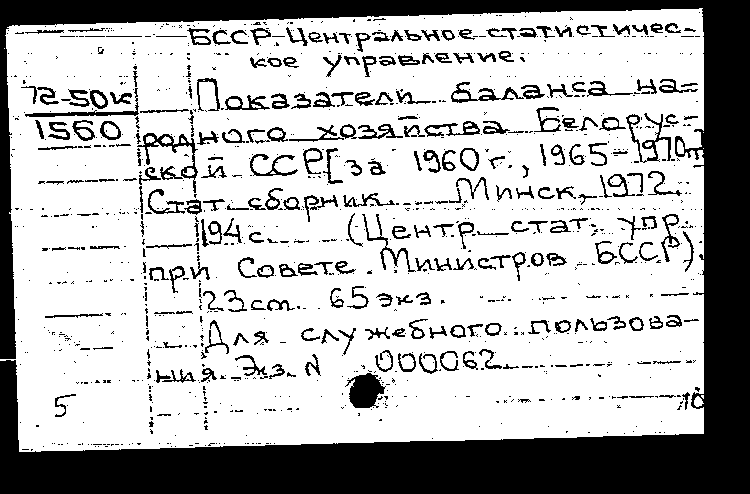 БССР. Центральное статистичес-
кое управление.
72-50к
1560
Показатели баланса на-
родного хозяйства Белорус-
ской ССР [за 1960 г., 1965-1970гг]
Стат. сборник. Минск, 1972.
194 с. (Центр. стат. упр.
при Совете Министров БССР).
23см. 65 экз.
Для служебного пользова-
ния. Экз. N 000062.
5
10